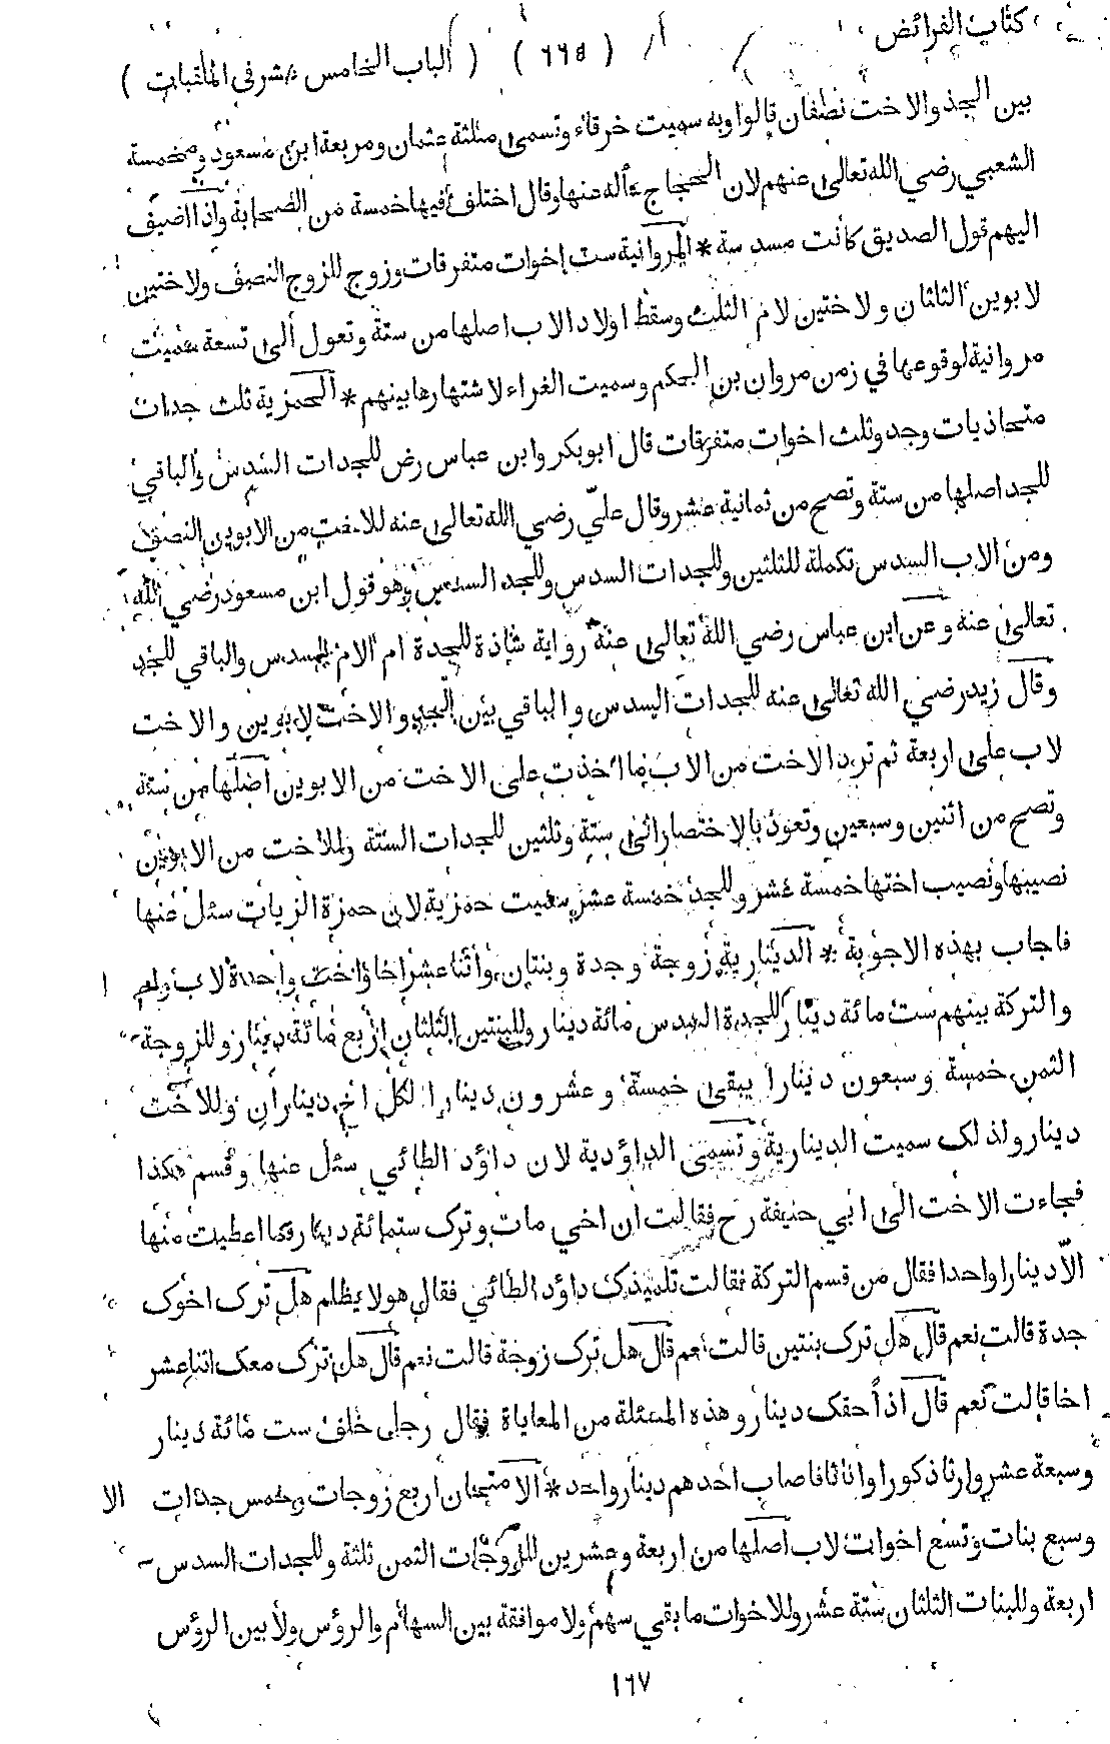 كتاب الفرائض ( ٦٦٥ ) ( الباب الخامس عشر في الملقبات )
بين الجد والاخت نصفان قالوا وبه سميت خرقاء وتسمى مثلثة عثمان ومربعة ابن مسعود ومخمسة
الشعبي رضي الله تعالى عنهم لان الحجاج سأله عنها وقال اختلف فيها خمسة من الصحابة واذا اضيف
اليهم قول الصديق كانت مسدسة * المروانية ست اخوات متفرقات وزوج للزوج النصف ولاختين
لابوين الثلثان ولاختين لام الثلث وسقط اولاد الاب اصلها من ستة وتعول الى تسعة سميت
مروانية لوقوعها في زمن مروان بن الحكم وسميت الغراء لاشتهارها بينهم * الحمزية ثلث جدات
متحاذيات وجد وثلث اخوات متفرقات قال ابو بكر وابن عباس رض للجدات السدس والباقي
للجد اصلها من ستة وتصح من ثمانية عشر وقال عليّ رضي الله تعالى عنه للاخت من الابوين النصف
ومن الاب السدس تكملة للثلثين وللجدات السدس وللجد السدس وهو قول ابن مسعود رضي الله
تعالى عنه وعن ابن عباس رضي الله تعالى عنه رواية شاذة للجدة ام الام السدس والباقي للجد
وقال زيد رضي الله تعالى عنه للجدات السدس والباقي بين الجد والاخت لابوين والاخت
لاب على اربعة ثم ترد الاخت من الاب ما اخذت على الاخت من الابوين اصلها من ستة
وتصح من اثنين وسبعين وتعود بالاختصار الى ستة وثلثين للجدات الستة وللاخت من الابوين
نصيبها ونصيب اختها خمسة عشر وللجد خمسة عشر سميت حمزية لان حمزة الزيات سئل عنها
فاجاب بهذه الاجوبة * الدينارية زوجة وجدة وبنتان واثنا عشر اخا واخت واحدة لاب وام
والتركة بينهم ست مائة دينار للجدة السدس مائة دينار وللبنتين الثلثان اربع مائة دينار وللزوجة
الثمن خمسة وسبعون دينارا يبقى خمسة وعشرون دينارا لكل اخ ديناران وللاخت
دينار ولذلك سميت الدينارية وتسمى الداؤدية لان داؤد الطائي سئل عنها وقسم هكذا
فجاءت الاخت الى ابي حنيفة رح فقالت ان اخي مات وترك ستمائة دينار فما اعطيت منها
الّا دينارا واحدا فقال من قسم التركة فقالت تلميذك داؤد الطائي فقال هو لا يظلم هل ترك اخوك
جدة قالت نعم قال هل ترك بنتين قالت نعم قال هل ترك زوجة قالت نعم قال هل ترك معك اثنا عشر
اخا قالت نعم قال اذاً حقك دينار وهذه المسئلة من المعاياة فيقال رجل خلف ست مائة دينار
وسبعة عشر وارثا ذكورا واناثا فاصاب احدهم دينار واحد * الامتحان اربع زوجات وخمس جدات
وسبع بنات وتسع اخوات لاب اصلها من اربعة وعشرين للزوجات الثمن ثلثة وللجدات السدس
اربعة وللبنات الثلثان ستة عشر وللاخوات ما بقي سهم ولا موافقة بين السهام والرؤس ولا بين الرؤس
١٦٧